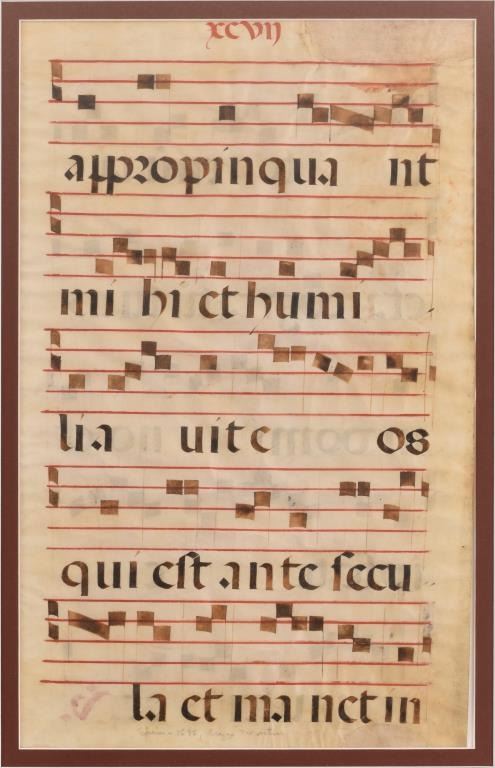 xcvij
appropinqua nt
mi hi et humi
lia uit e os
qui est ante secu
la et ma net in